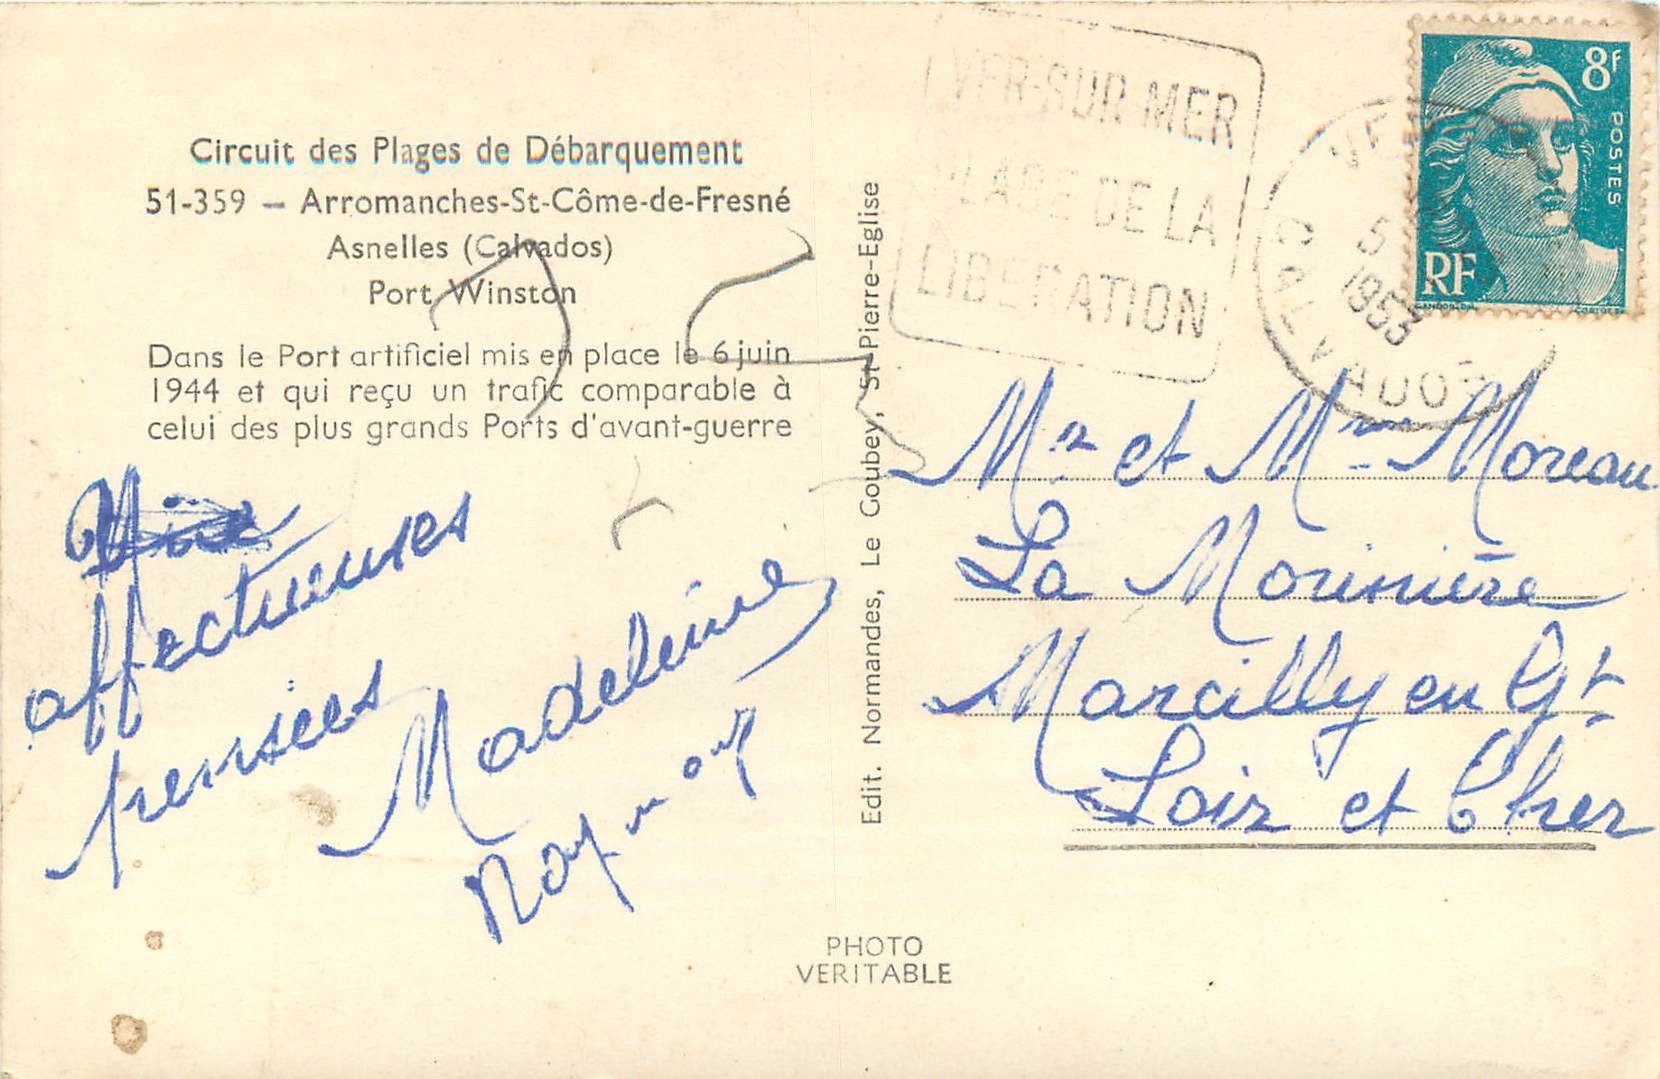 Circuit des Plages de Débarquement
51-359 — Arromanches-St-Côme-de-Fresné
Asnelles (Calvados)
Port Winston
Dans le Port artificiel mis en place le 6 juin
1944 et qui reçu un trafic comparable à
celui des plus grands Ports d'avant-guerre
affectueuses
pensées
Madeleine
Edit. Normandes, Le Coubey, St-Pierre-Eglise
PHOTO
VERITABLE
VER-SUR-MER
PLAGE DE LA
LIBERATION
VER
5
1953
CALVADOS
8F
POSTES
RF
GANDON
CORTOT
Mr et Mme Moreau
La Morinière
Marcilly en Gt
Loir et Cher